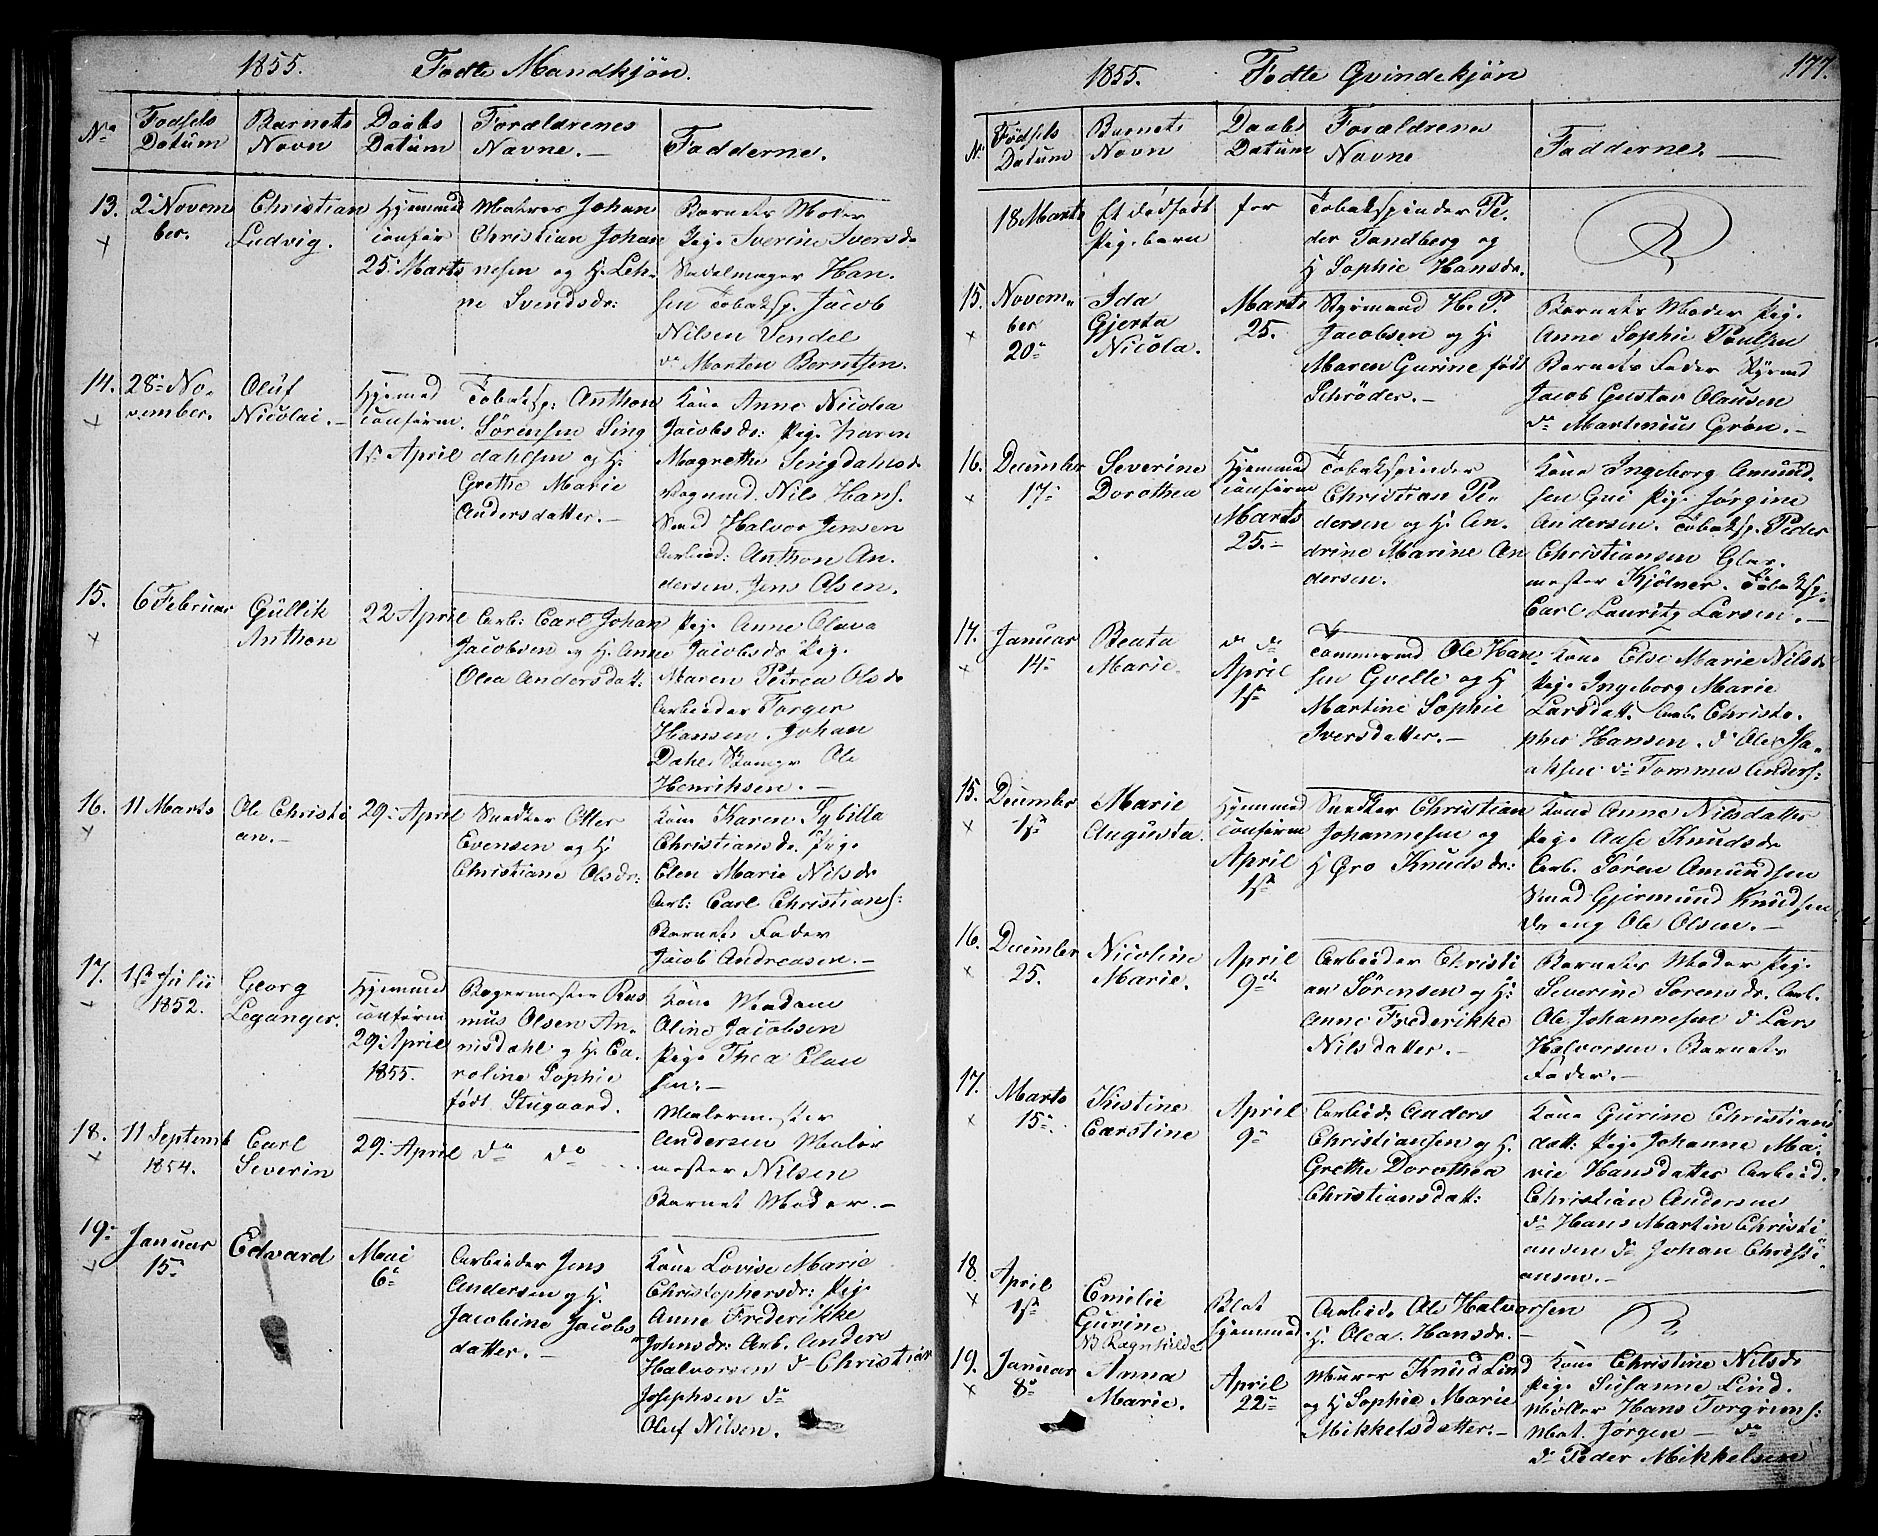 1855. Fødte Mandkjøn.
No
Fødsels Datum
Barnets Navn
Daabs Datum
Forældrenes Navne. —
Fadderne.
13. 2 Novem
ber.
Christian
Ludvig.
Hjemmed
Confir
25 Marts
Matros Johan
Christian Johan
nesen og H. Leh-
ne Svendsdr:
Barnets Moder
Pige Iverine Iversdr
Sadelmager Han-
sen Tobaksp. Jacob
Nilsen Vendel
do Morten Berntsen.
14. 28 No-
vember.
Oluf
Nicolai. —
Hjemmed
Confirm.
1st April
Tobaksp: Anthon
Sørensen Sing
dahlsen og H.
Grethe Marie
Andersdatter. —
Kone Anne Nicolea
Jacobsdr: Pige Karen
Magrethe Singdahlsdr
Vognmd. Nils Hans.
Smed Halvor Jensen
Arbeid: Anthon An-
dersen. Jens Olsen.
15. 6 Februar
Gullik
Anthon
22 April
Arb: Carl Johan
Jacobsen og H. Anne
Olea Andersdatt.
Pige Anne Olava
Jacobsdr Pige
Maren Petrea Olsdr
Arbeider Torger
Hansen. Johan
Dahl
Ole
Henriksen. —
16. 11 Marts
Ole Christi
an. —
29 April
Snedker Otter
Evensen og H.
Christiane Olsdr:
Kone Karen Sybilla
Christiansdr. Pige
Elen Marie Nilsdr
Arb: Carl Christians:
Barnets Fader
Jacob Andreasen. —
17. 1st Julii
1852.
Georg
Leganger.
Hjemmed
Confirm
29 April
1855.
Bagermester Ras
mus Olsen An-
nisdahl og H. Ca-
roline Sophie
født Stugaard.
Kone Madam
Oline Jacobsen
Pige Thea Clau
sen: —
18. 11 Septemb
1854.
Carl
Severin
29. April
do do
Malermester
Andersen Maler
mester Nilsen
Barnet Moder. —
19. Januar
15
Edvard
Mai
6
Arbeider Jens
Andersen og H.
Jacobine Jacobs
datter. —
Kone Lovise Marie
Christophersdr: Pige
Anne Frederikke
Johnsdr. Arb. Anders
Halvorsen do Christian
Josephsen do
Oluf Nilsen.
1855. Fødte Qvindekjøn 177.
No
Fødsels Datum
Barnets Navn
Daabs Datum
Forældrenes Navne
Fadderne. —
18 Marts
Et dødfødt
Pigebarn
for
Tobakspinder Pe-
der Tandberg og
H Sophie Hansdr.
15. Novem-
ber
20
Ida
Gjerta
Nicola.
Marts
25.
Styrmand H. P.
Jacobsen og H.
Maren Gurine født
Schrøder. —
Barnets Moder Pige
Anne Sophie Poulsen
Barnets Fader Styrmd
Jacob Gustav Olausen
do Martinius Grøn. —
16. December
17
Severine
Dorothea
Hjemmed
Confirm
Marts
25. —
Tobakspinder
Christian Pe-
dersen og H. An-
drine Marine An
dersen.
Kone Ingeborg Amund
sen Gui Pige Jørgine
Andersen. Tobaksp. Peder
Christiansen Glar-
mester Kjølner. Tobaksp.
Carl Lauritz Larsen. —
14. Januar
14
Beata
Marie.
do do
April
1st
Tømmermd Ole Han-
sen Gvelle og H
Martine Sophie
Iversdatter. —
Kone Else Marie Nilsdr
Pige Ingeborg Marie
Larsdatt. Arb. Christo-
pher Hansen. do Ole Isa-
aksen do Tommes Anders:
15. December
1st
Marie
Augusta.
Hjemmed
Confirm
April
1st
Snedker Christian
Johannesen og
H Gro Knudsdr:
Kone Anne Nilsdatter
Pige Aase Knudsdr
Arb. Søren Amundsen
Smed Gjermund Knudsen
do og Ole Olsen. —
16. December
25.
Nicoline
Marie.
April
9de
Arbeider Christi
an Sørensen og H:
Anne Frederikke
Nilsdatter. —
Barnets Moder Pige
Severine Sørensdr. Arb.
Ole Johannesen do Lars
Halvorsen. Barnets
Fader. —
17. Marts
15
Kistine
Carstine
April
9
Arbeid. Anders
Christiansen og H.
Grethe Dorothea
Christiansdatt:
Kone Gurine Christians
datt: Pige Johanne Ma-
rie Hansdatter Arbeid.
Christian Andersen
do Hans Martin Christi
ansen do Johan Christi
ansen. —
18. April
1st
Emilie
Gurine
NB Ragnhilde
Blot
hjemmed.
Arbeid. Ole Halvorsen
H. Olea Hansdr. —
19. Januar
8
Anna
Marie.
April
22
Murer Knud Lind
og H Sophie Marie
Mikkelsdatter: —
Kone Christine Nilsdr
Pige Susanne Lind.
Møller Hans Torgrims:
Mat. Jørgen — do
do Peder Mikkelsen